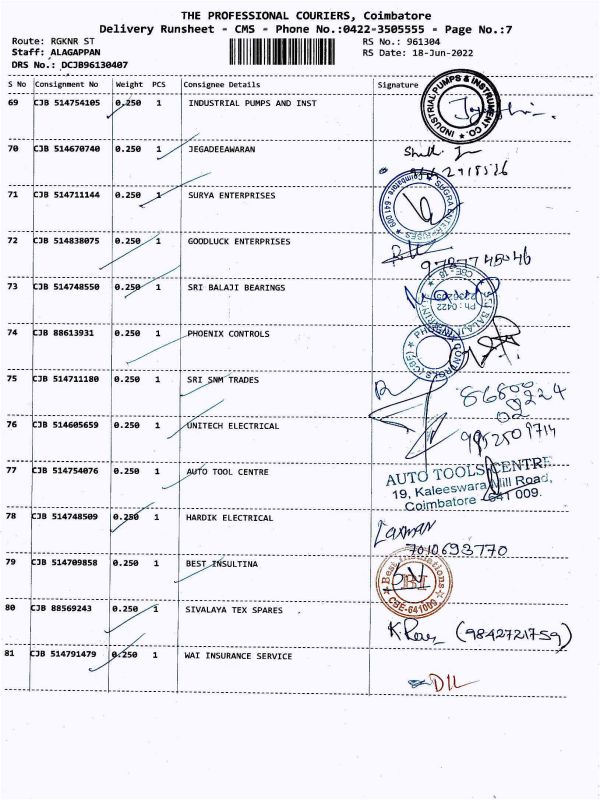 THE PROFESSIONAL COURIERS, Coimbatore
Delivery Runsheet - CMS - Phone No.:0422-3505555 - Page No.:7
Route: RGKNR ST RS No.: 961304
Staff: ALAGAPPAN RS Date: 18-Jun-2022
DRS No.: DCJB96130407
S No Consignment No Weight PCS Consignee Details Signature
69 CJB 514754105 0.250 1 INDUSTRIAL PUMPS AND INST
INDUSTRIAL PUMPS & INSTRUMENT CO
70 CJB 514670740 0.250 1 JEGADEEAWARAN
71 CJB 514711144 0.250 1 SURYA ENTERPRISES
Coimbatore - 641
72 CJB 514838075 0.250 1 GOODLUCK ENTERPRISES
9787745046
73 CJB 514748550 0.250 1 SRI BALAJI BEARINGS
CBE-18
Ph : 0422
SRI BALAJI
74 CJB 88613931 0.250 1 PHOENIX CONTROLS
CONTROLS (CBE)
75 CJB 514711180 0.250 1 SRI SNM TRADES
76 CJB 514605659 0.250 1 UNITECH ELECTRICAL
77 CJB 514754076 0.250 1 AUTO TOOL CENTRE
AUTO TOOLS CENTRE
19, Kaleeswara Mill Road,
Coimbatore - 641 009.
78 CJB 514748509 0.250 1 HARDIK ELECTRICAL
Laxman
7010693770
79 CJB 514709858 0.250 1 BEST INSULTINA
Best Insulations
BI
CBE-641009
80 CJB 88569243 0.250 1 SIVALAYA TEX SPARES
(9842721759)
81 CJB 514791479 0.250 1 WAI INSURANCE SERVICE